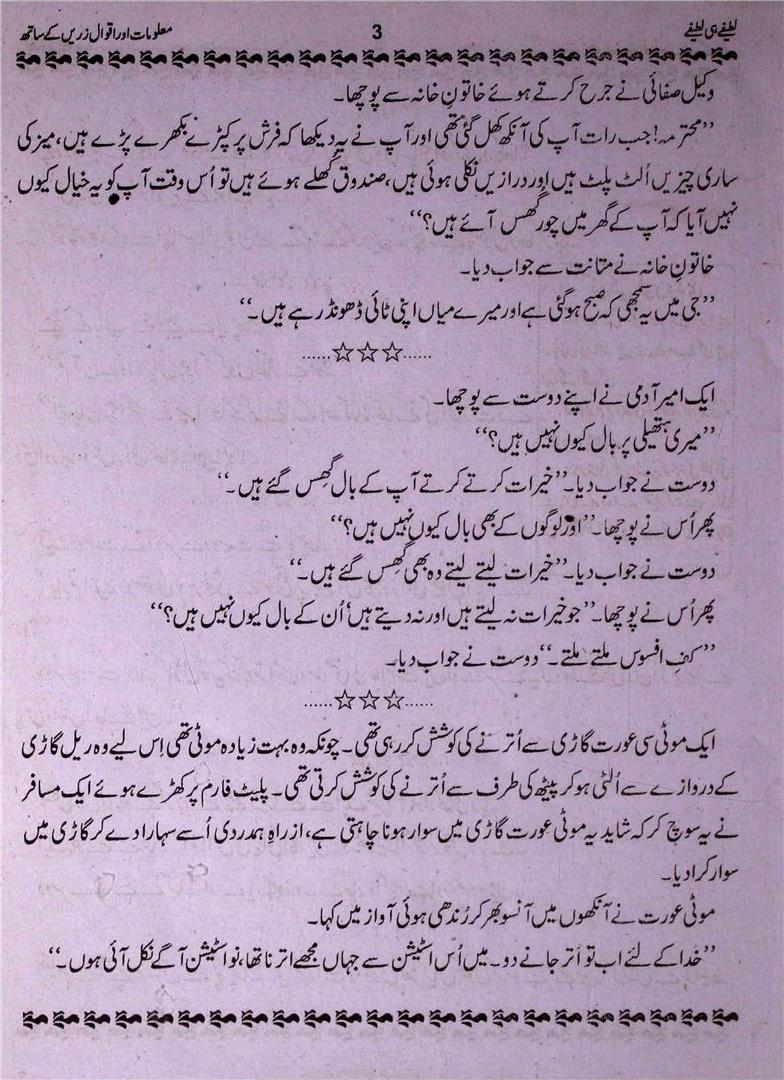 لطیفے ہی لطیفے 3 معلومات اور اقوال زریں کے ساتھ
وکیل صفائی نے جرح کرتے ہوئے خاتونِ خانہ سے پوچھا۔
’’محترمہ! جب رات آپ کی آنکھ کھل گئی تھی اور آپ نے یہ دیکھا کہ فرش پر کپڑے بکھرے پڑے ہیں، میز کی
ساری چیزیں اُلٹ پلٹ ہیں اور درازیں نکلی ہوئی ہیں، صندوق کُھلے ہوئے ہیں تو اُس وقت آپ کو یہ خیال کیوں
نہیں آیا کہ آپ کے گھر میں چور گھس آئے ہیں؟‘‘
خاتونِ خانہ نے متانت سے جواب دیا۔
’’جی میں یہ سمجھی کہ صبح ہو گئی ہے اور میرے میاں اپنی ٹائی ڈھونڈ رہے ہیں۔‘‘
......☆☆☆......
ایک امیر آدمی نے اپنے دوست سے پوچھا۔
’’میری ہتھیلی پر بال کیوں نہیں ہیں؟‘‘
دوست نے جواب دیا۔ ’’خیرات کرتے کرتے آپ کے بال گھِس گئے ہیں۔‘‘
پھر اُس نے پوچھا۔ ’’اور لوگوں کے بھی بال کیوں نہیں ہیں؟‘‘
دوست نے جواب دیا۔ ’’خیرات لیتے لیتے وہ بھی گھِس گئے ہیں۔‘‘
پھر اُس نے پوچھا۔ ’’جو خیرات نہ لیتے ہیں اور نہ دیتے ہیں‘ اُن کے بال کیوں نہیں ہیں؟‘‘
’’کفِ افسوس ملتے ملتے۔‘‘ دوست نے جواب دیا۔
......☆☆☆......
ایک موٹی سی عورت گاڑی سے اُترنے کی کوشش کر رہی تھی۔ چونکہ وہ بہت زیادہ موٹی تھی اِس لیے وہ ریل گاڑی
کے دروازے سے اُلٹی ہو کر پیٹھ کی طرف سے اُترنے کی کوشش کرتی تھی۔ پلیٹ فارم پر کھڑے ہوئے ایک مسافر
نے یہ سوچ کر کہ شاید یہ موٹی عورت گاڑی میں سوار ہونا چاہتی ہے، ازراہِ ہمدردی اُسے سہارا دے کر گاڑی میں
سوار کرا دیا۔
موٹی عورت نے آنکھوں میں آنسو بھر کر رُندھی ہوئی آواز میں کہا۔
’’خدا کے لئے اب تو اُتر جانے دو۔ میں اُس اسٹیشن سے جہاں مجھے اترنا تھا، نو اسٹیشن آگے نکل آئی ہوں۔‘‘